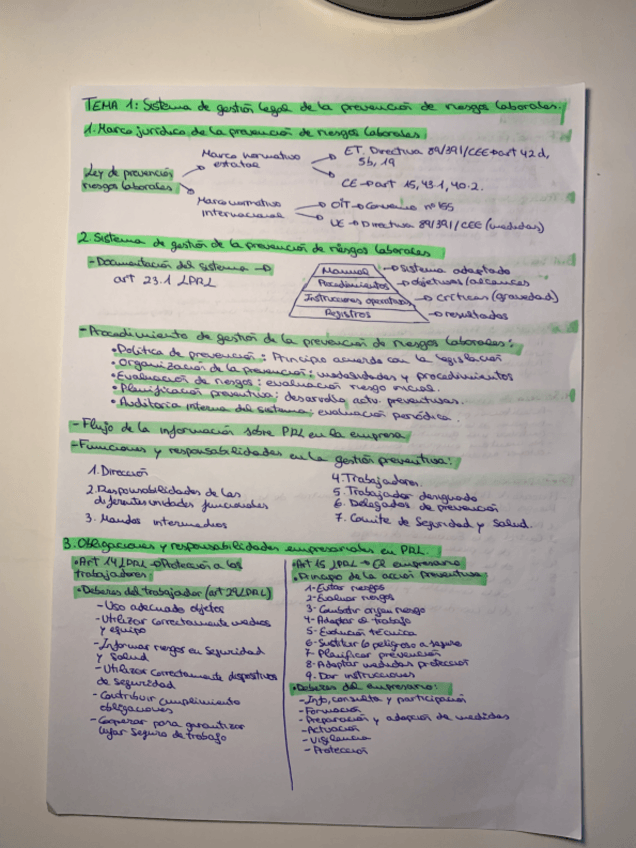 TEMA 1: Sistema de gestión legal de la prevención de riesgos laborales.
1. Marco jurídico de la prevención de riesgos laborales
Ley de prevención
riesgos laborales
Marco normativo
estatal
ET. Directiva 89/391/CEE→art 42d,
5b, 19
CE→art 15, 43.1, 40.2.
Marco normativo
Internacional
OIT→Convenio nº155
UE→Directiva 89/391/CEE (medidas)
2. Sistema de gestión de la prevención de riesgos laborales
-Documentación del sistema→
art 23.1 LPRL
Manual →Sistema adaptado
Procedimientos →objetivos (alcances)
Instrucciones operativas →críticas (gravedad)
Registros →resultados
-Procedimiento de gestión de la prevención de riesgos laborales:
•Política de prevención: Principio acuerdo con la legislación
•Organización de la prevención: modalidades y procedimientos
•Evaluación de riesgos: evaluación riesgo inicial.
•Planificación preventiva: desarrollo actv. preventivas.
•Auditoria interna del sistema: evaluación periódica.
-Flujo de la información sobre PRL en la empresa
-Funciones y responsabilidades en la gestión preventiva:
1. Dirección
2. Responsabilidades de las
diferentes unidades funcionales
3. Mandos intermedios
4. Trabajadores.
5. Trabajador designado
6. Delegados de prevención
7. Comite de Seguridad y Salud.
3. Obligaciones y responsabilidades empresariales en PRL.
•Art 14 LPRL→Protección a los
trabajadores
•Deberes del trabajador (art 29 LPRL)
-Uso adecuado objetos
-Utilizar correctamente medios
y equipo
-Informar riesgos en Seguridad
y Salud
-Utilizar correctamente dispositivos
de seguridad
-Contribuir cumplimiento
obligaciones
-Cooperar para garantizar
lugar seguro de trabajo
•Art 15 LPRL→El empresario
•Principio de la acción preventiva
1-Evitar riesgos
2-Evaluar riesgos
3-Combatir origen riesgo
4-Adaptar el trabajo
5-Evolución técnica
6-Sustituir lo peligroso a seguro
7-Planificar prevención
8-Adoptar medidas protección
9. Dar instrucciones
•Deberes del empresario:
-Info, consulta y participación
-Formación
-Preparación y adopción de medidas
-Actuación
-Vigilancia
-Protección